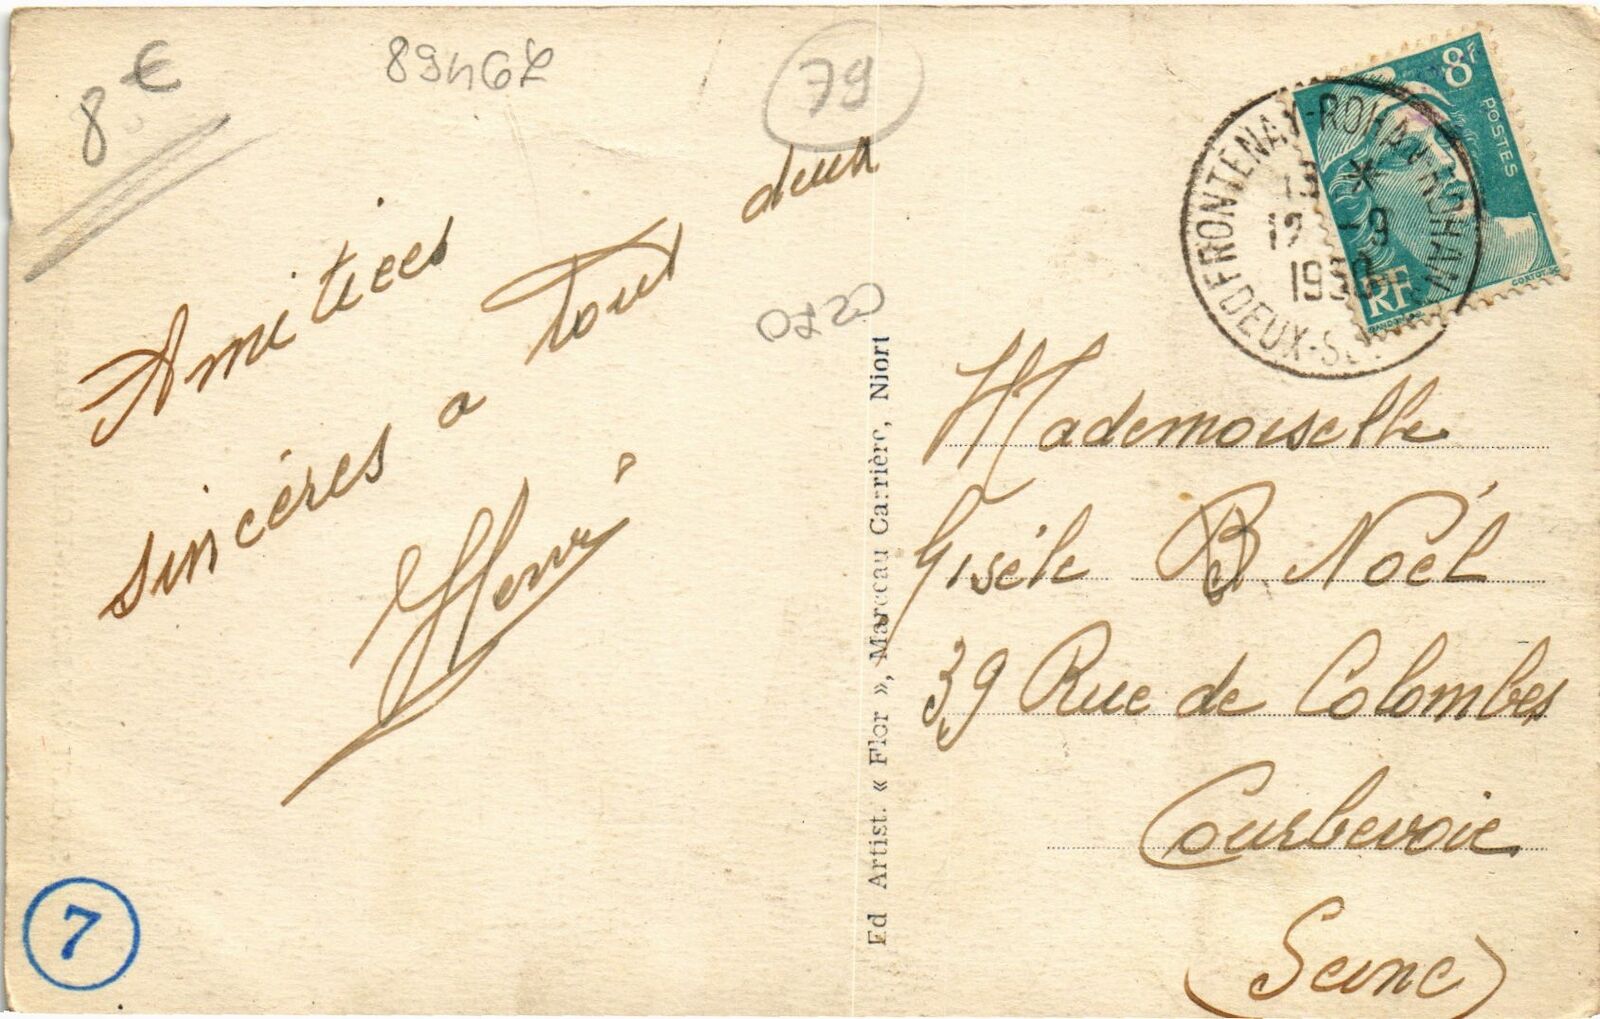 8 €
89467
79
Amitiées
sincères a tout deux
Henri
0220
7
Ed Artist. « Flor », Marceau Carrière, Niort
8F
POSTES
RF
FRONTENAY-ROHAN-ROHAN
12 -9
1950
DEUX-S
Mademoiselle
Gisèle B Noël
39 Rue de Colombes
Courbevoie
(Seine)